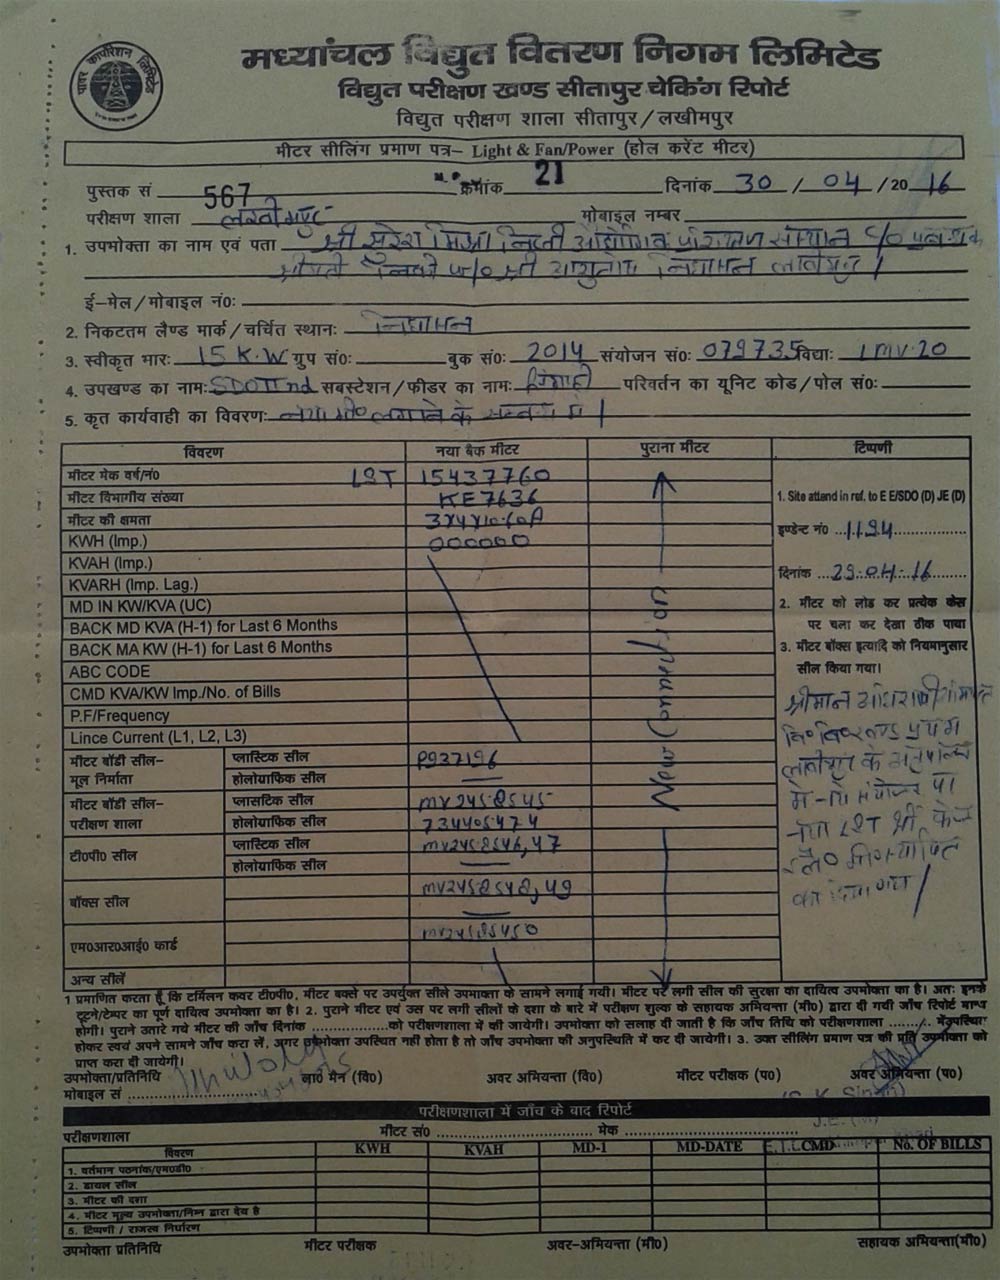 पावर कार्पोरेशन लिमिटेड
मध्यांचल विद्युत वितरण निगम लिमिटेड
विद्युत परीक्षण खण्ड सीतापुर चेकिंग रिपोर्ट
विद्युत परीक्षण शाला सीतापुर/लखीमपुर
मीटर सीलिंग प्रमाण पत्र– Light & Fan/Power (होल करेंट मीटर)
पुस्तक सं 567 क्रमांक 21 दिनांक 30 / 04 / 2016
परीक्षण शाला लखीमपुर मोबाइल नम्बर
1. उपभोक्ता का नाम एवं पता श्री सुरेश मिश्रा निजी औद्योगिक संस्थान c/o
श्रीमती श्री आशुतोष निघासन
ई–मेल/मोबाइल नं0:
2. निकटतम लैण्ड मार्क/चर्चित स्थान: निघासन
3. स्वीकृत भार: 15 K.W ग्रुप सं0: बुक सं0: 2014 संयोजन सं0: 079735 विद्या: LMV.20
4. उपखण्ड का नाम: SDO IInd सबस्टेशन/फीडर का नाम: परिवर्तन का यूनिट कोड/पोल सं0:
5. कृत कार्यवाही का विवरण: नया मी0 लगाने के सम्बन्ध में।
विवरण नया बैक मीटर पुराना मीटर टिप्पणी
मीटर मेक वर्ष/नं0 L&T 15437760
मीटर विभागीय संख्या KE7636
मीटर की क्षमता 3x4x10-60A
KWH (Imp.) 000000
KVAH (Imp.)
KVARH (Imp. Lag.)
MD IN KW/KVA (UC)
BACK MD KVA (H-1) for Last 6 Months
BACK MA KW (H-1) for Last 6 Months
ABC CODE
CMD KVA/KW Imp./No. of Bills
P.F/Frequency
Lince Current (L1, L2, L3)
New Connection
मीटर बॉडी सील– प्लास्टिक सील P937196
मूल निर्माता होलोग्राफिक सील
मीटर बॉडी सील– प्लासटिक सील MV2458545
परीक्षण शाला होलोग्राफिक सील 734405474
टी0पी0 सील प्लास्टिक सील MV2458546,47
होलोग्राफिक सील
बॉक्स सील MV2458548,49
एम0आर0आई0 कार्ड MV2458550
अन्य सीलें
1. Site attend in ref. to E E/SDO (D) JE (D)
इण्डेन्ट नं0 1194
दिनांक 29.04.16
2. मीटर को लोड कर प्रत्येक केस
पर चला कर देखा ठीक पाया
3. मीटर बॉक्स इत्यादि को नियमानुसार
सील किया गया।
श्रीमान
वि0 वि0 खण्ड प्रथम
लखीमपुर के
में संयोजन पर
नया L&T
कर दिया गया
1 प्रमाणित करता हूँ कि टर्मिलन कवर टी0पी0, मीटर बक्से पर उपर्युक्त सीले उपभाक्ता के सामने लगाई गयी। मीटर पर लगी सील की सुरक्षा का दायित्व उपभोक्ता का है। अतः इनके
टूटने/टेम्पर का पूर्ण दायित्व उपभोक्ता का है। 2. पुराने मीटर एवं उस पर लगी सीलों के दशा के बारे में परीक्षण शुल्क के सहायक अभियन्ता (मी0) द्वारा दी गयी जाँच रिपोर्ट मान्य
होगी। पुराने उतारे गये मीटर की जाँच दिनांक ............को परीक्षणशाला में की जायेगी। उपभोक्ता को सलाह दी जाती है कि जाँच तिथि को परीक्षणशाला ......... में उपस्थित
होकर स्वयं अपने सामने जाँच करा लें, अगर उपभोक्ता उपस्थित नहीं होता है तो जाँच उपभोक्ता की अनुपस्थिति में कर दी जायेगी। 3. उक्त सीलिंग प्रमाण पत्र की प्रति उपभोक्ता को
प्राप्त करा दी जायेगी।
उपभोक्ता/प्रतिनिधि ला0 मैन (वि0) अवर अभियन्ता (वि0) मीटर परीक्षक (प0) अवर अभियन्ता (प0)
मोबाइल सं
Singh)
J.E.
परीक्षणशाला में जाँच के बाद रिपोर्ट
परीक्षणशाला मीटर सं0 ............ मेक ............
विवरण KWH KVAH MD-1 MD-DATE CMD No. OF BILLS
1. वर्तमान पठनांक/एम0डी0
2. डायल सील
3. मीटर की दशा
4. मीटर मूल्य उपभोक्ता/निम्न द्वारा देय है
5. टिप्पणी / राजस्व निर्धारण
उपभोक्ता प्रतिनिधि मीटर परीक्षक अवर–अभियन्ता (मी0) सहायक अभियन्ता(मी0)